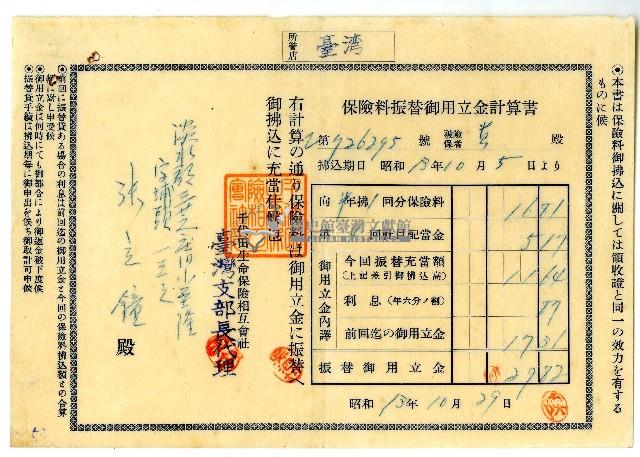 所管店
臺湾
●本書は保險料御拂込に關しては領收證と同一の效力を有する
ものに候
保險料振替御用立金計算書
第 926295 號 被險保者 殿
拂込期日 昭和 13年 10月 5日より
向 年拂 1 回分保險料 1681
回社員配當金 517
御用立金內譯
今回振替充當額
(上記差引御拂込高) 1164
利息 (年六分ノ割) 89
前回迄の御用立金 1731
振替御用立金
昭和 13年 10月 29日
右計算の通り保險料は御用立金に振替へ
御拂込に充當仕候也
千代田生命保險相互會社
臺灣支部長代理
張 立 鐘 殿
●前回に振替貸ある場合の利息は前回迄の御用立金と今回の保險料拂込額との合算
額に對し申受候
●御用立金は何時にても御都合により御返金被下度候
●振替貸手續は拂込期每に御申出を俟ち御取計可申候